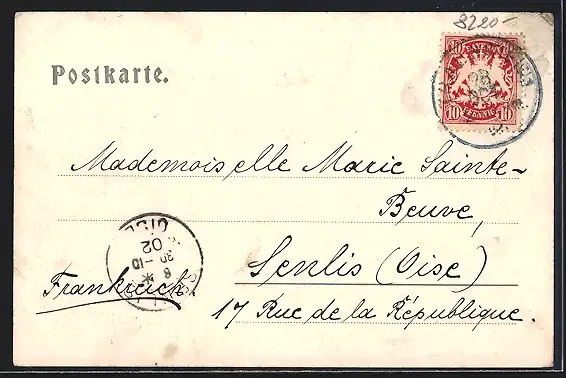 3220-
Postkarte.
10 BAYERN 10
10 PFENNIG 10
Mademoiselle Marie Sainte-
Beuve,
Senlis (Oise)
Frankreich
17 Rue de la République.
OISE
02